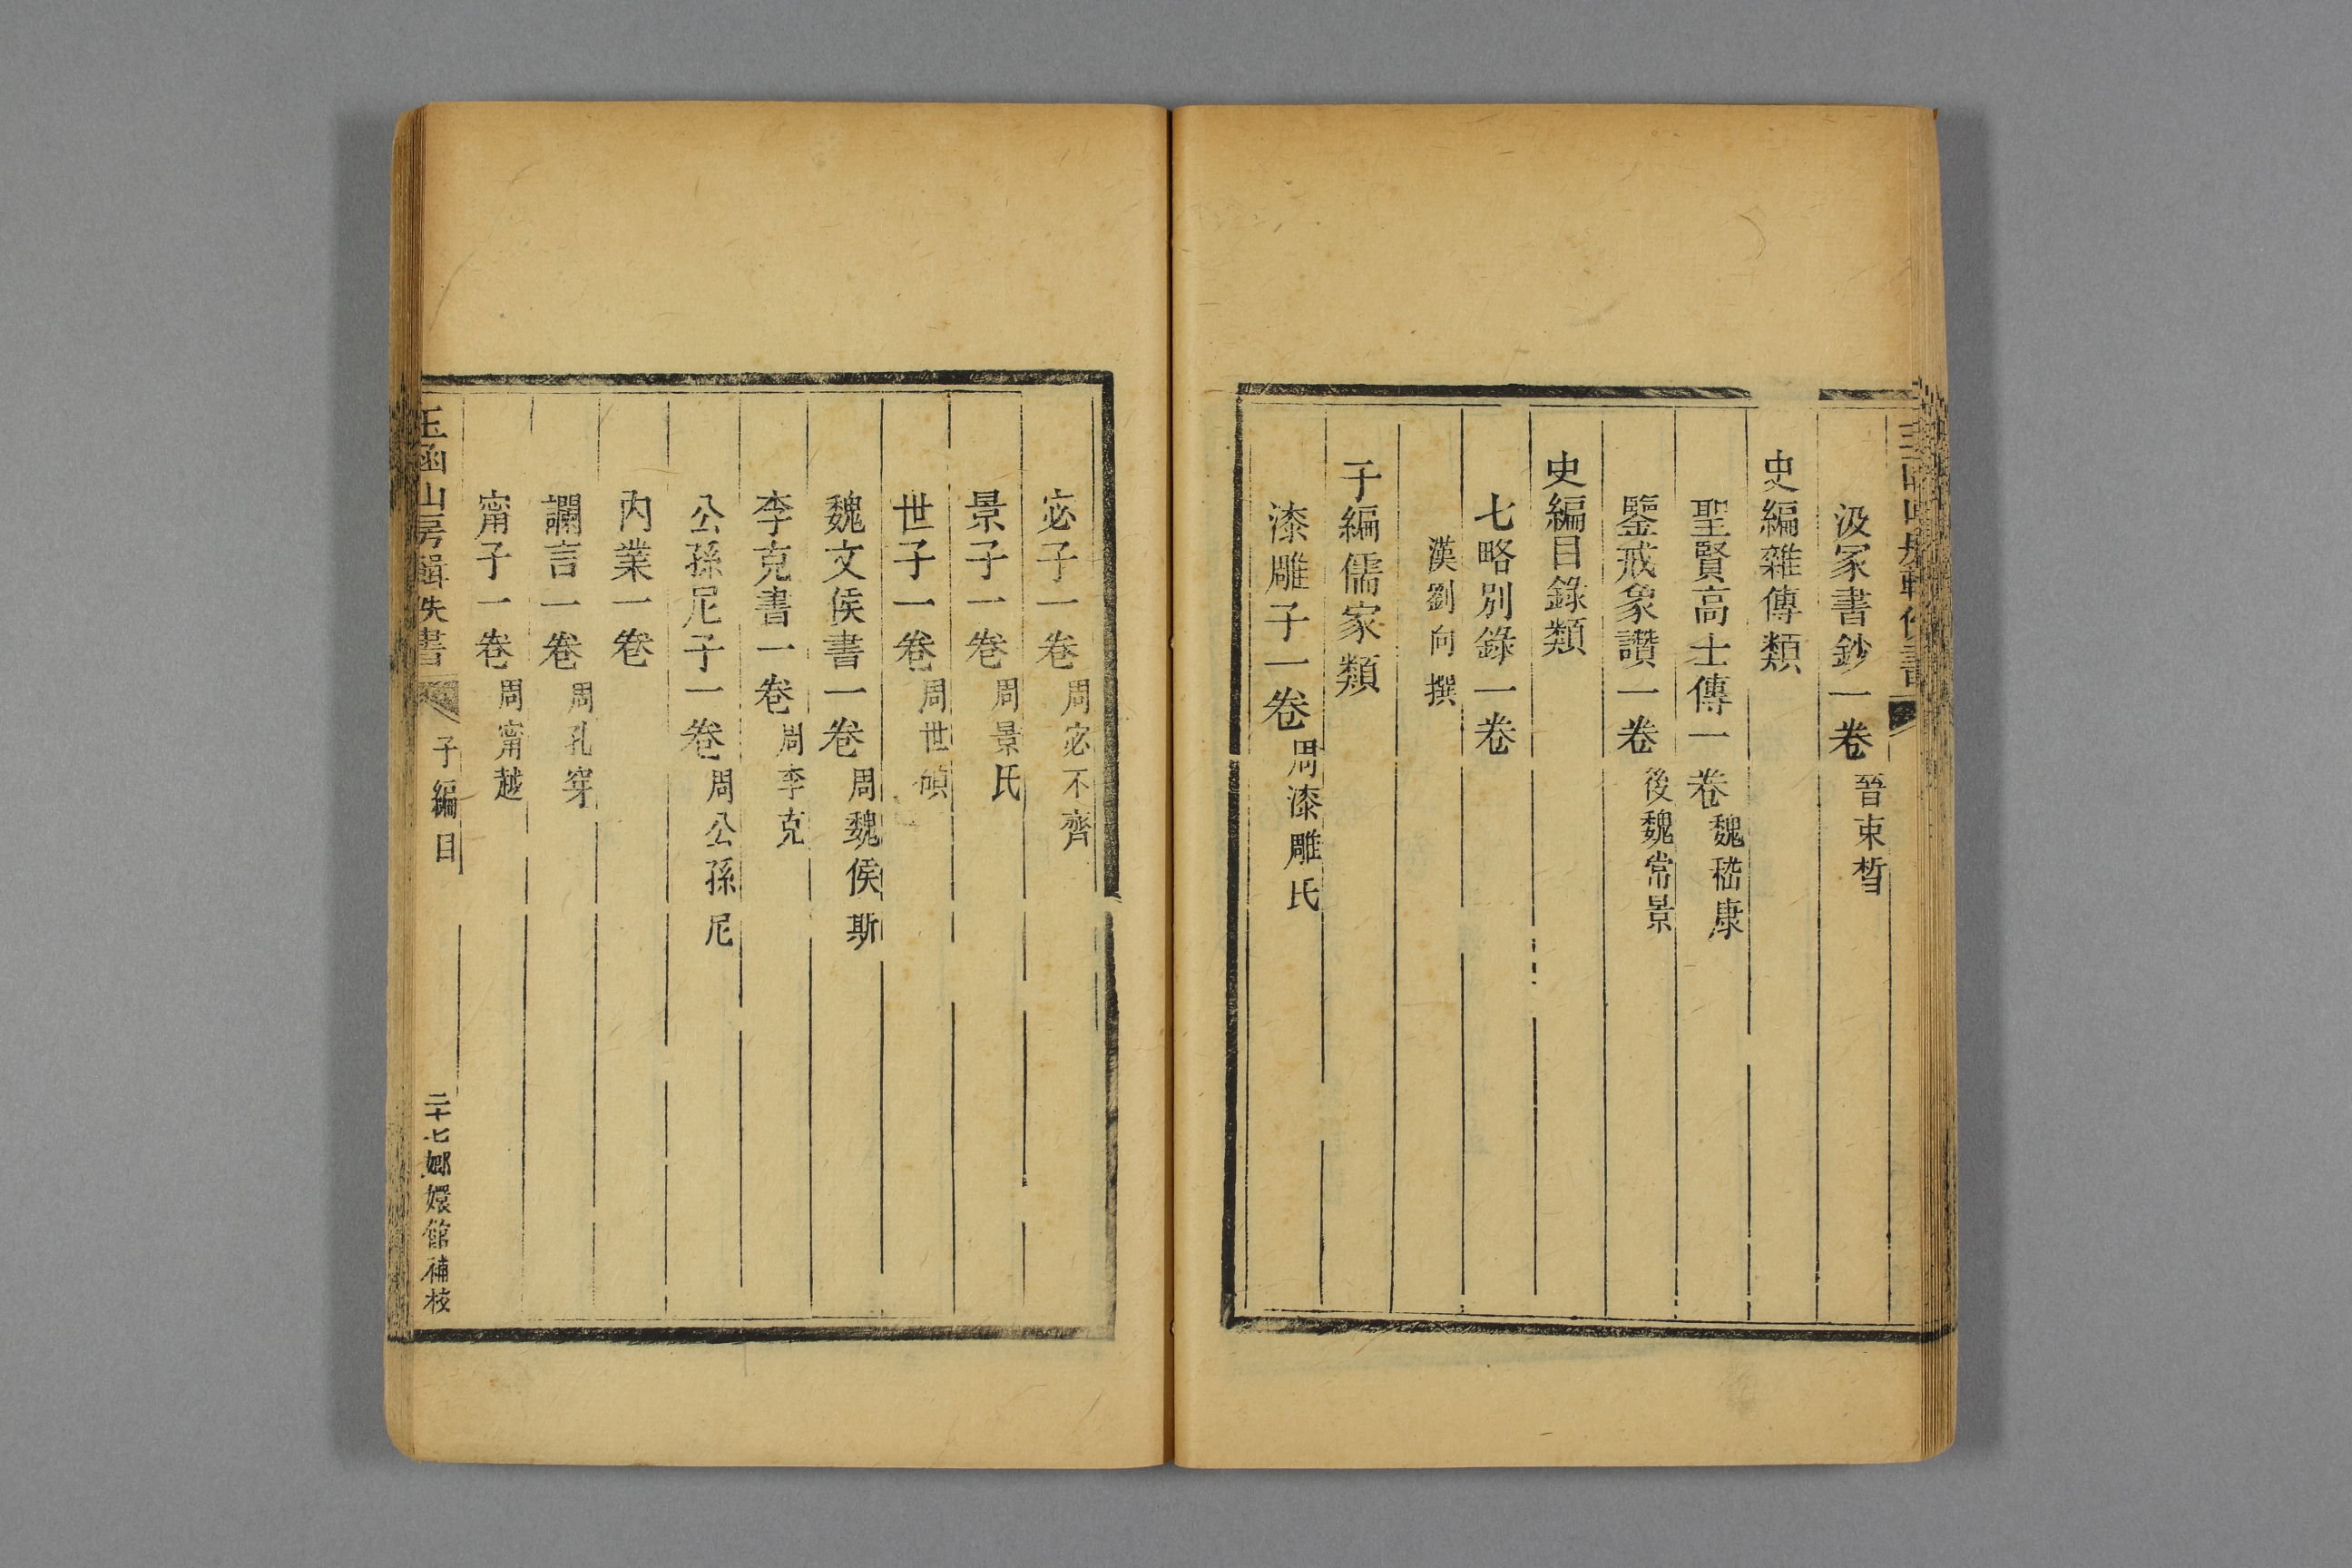 汲冢書鈔一卷晉束晳
史編雜傳類
聖賢高士傳一卷魏嵇康
鑒戒象讚一卷後魏常景
史編目錄類
七略別錄一卷
漢劉向撰
子編儒家類
漆雕子一卷周漆雕氏
宓子一卷周宓不齊
景子一卷周景氏
世子一卷周世碩
魏文侯書一卷周魏侯斯
李克書一卷周李克
公孫尼子一卷周公孫尼
內業一卷
讕言一卷周孔穿
甯子一卷周甯越
玉函山房輯佚書 子編目 二十七 嫏嬛館補校